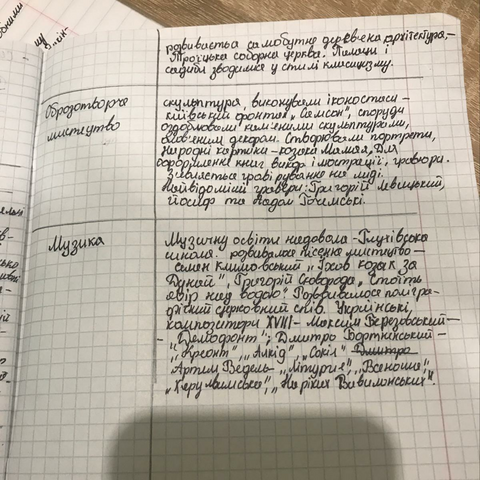 розвивається самобутня дерев'яна архітектура,–
Троїцька соборна церква. Палаци і
садиби зводилися у стилі класицизму.
Образотворче
мистецтво
скульптура, виконували іконостаси –
київський фонтан „Самсон", споруди
оздоблювали кам'яними скульптурами,
ліпним декором. Створювали портрети,
народні картини – козака Мамая. Для
оформлення книг використ ілюстрації, гравюри.
З'являється гравірування на міді.
Найвідоміші гравери: Григорій Левицький,
Йосиф та Адам Гочемські.
Музика
Музичну освіти надавала – Глухівська
школа. розвивалося пісенне мистецтво –
семен Климовський „Їхав козак за
Дунай", Григорій Сковорода „Стоїть
явір над водою". Розвивалося
церковний спів. Українські
композитори XVIII – Максим Березовський –
– „Демофонт"; Дмитро Бортнянський –
– „Креонт", „Алкід", „Сокіл" Дмитро
Артем Ведель – „Літургія", „Всеношна",
„Херувимська", „На ріках Вавилонських".